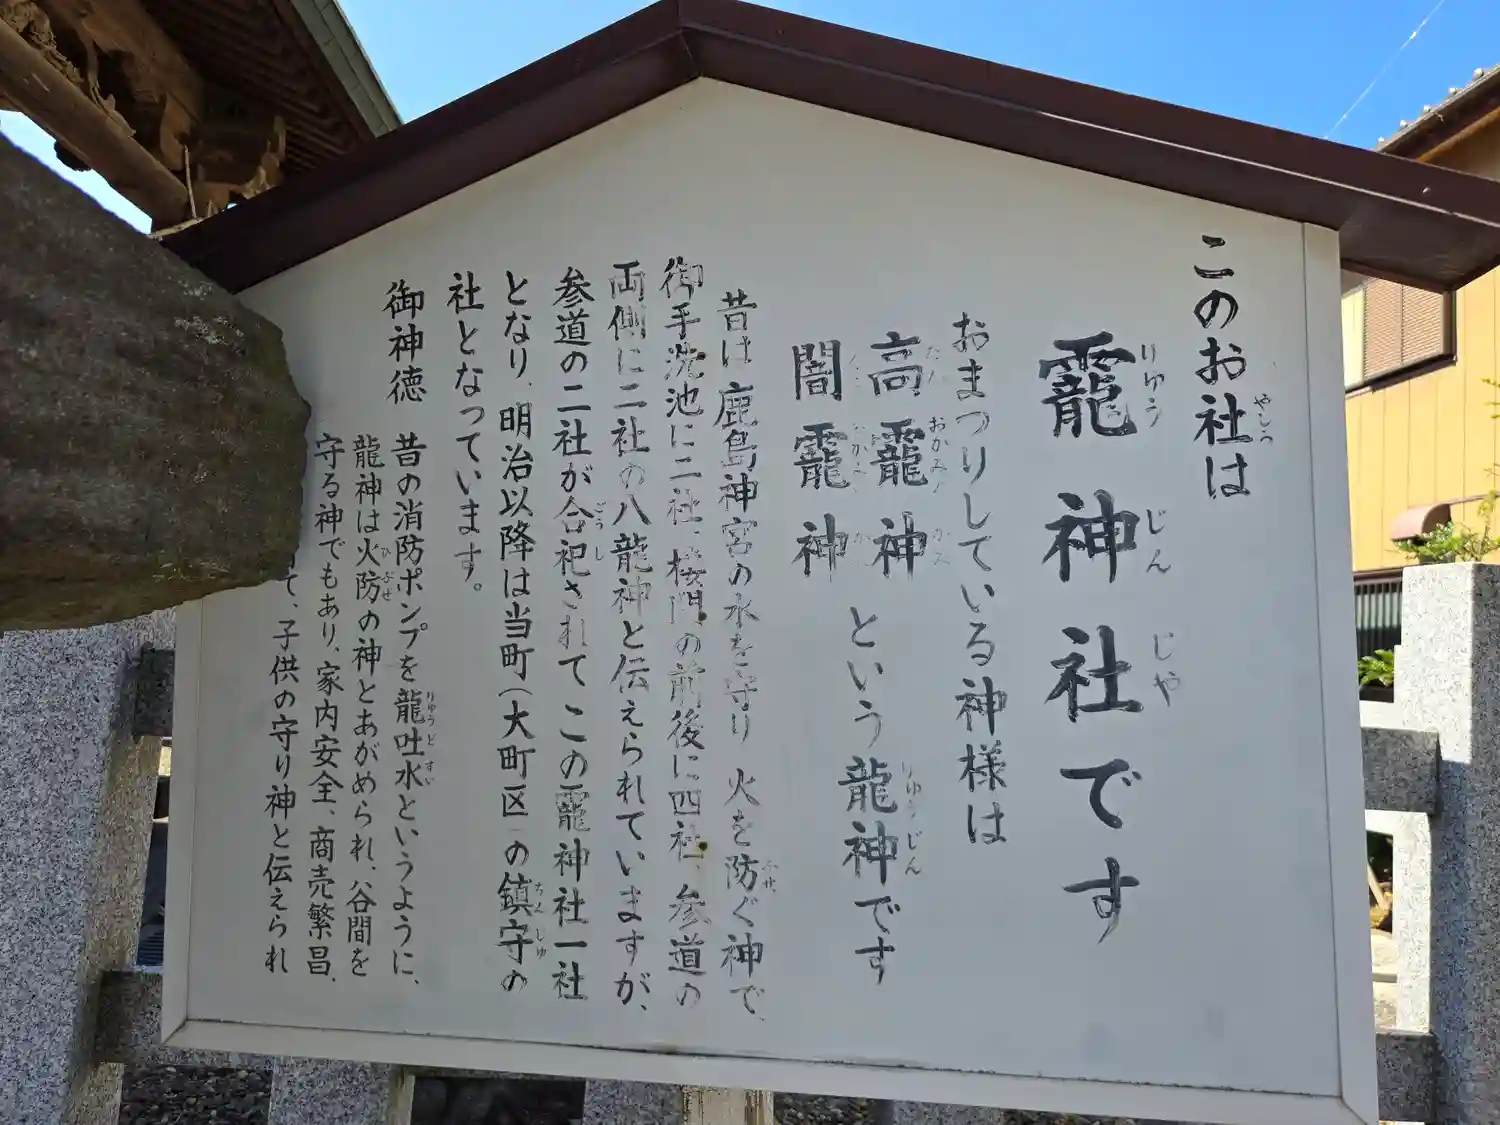 このお社は
やしろ
龗神社です
りゅう じん じや
おまつりしている神様は
高龗神
たか おかみ かみ
闇龗神
という龍神です
りゅうじん
昔は鹿島神宮の水を守り 火を防ぐ神で、
ふせ
御手洗池に二社、楼門の前後に四社、参道の
両側に二社の八龍神と伝えられていますが、
参道の二社が合祀されてこの龗神社一社
ごうし
となり、明治以降は当町(大町区)の鎮守の
ちんじゅ
社となっています。
御神徳 昔の消防ポンプを龍吐水というように、
りゅうどすい
龍神は火防の神とあがめられ、谷間を
ひぶせ
守る神でもあり、家内安全、商売繁昌、
て、子供の守り神と伝えられ